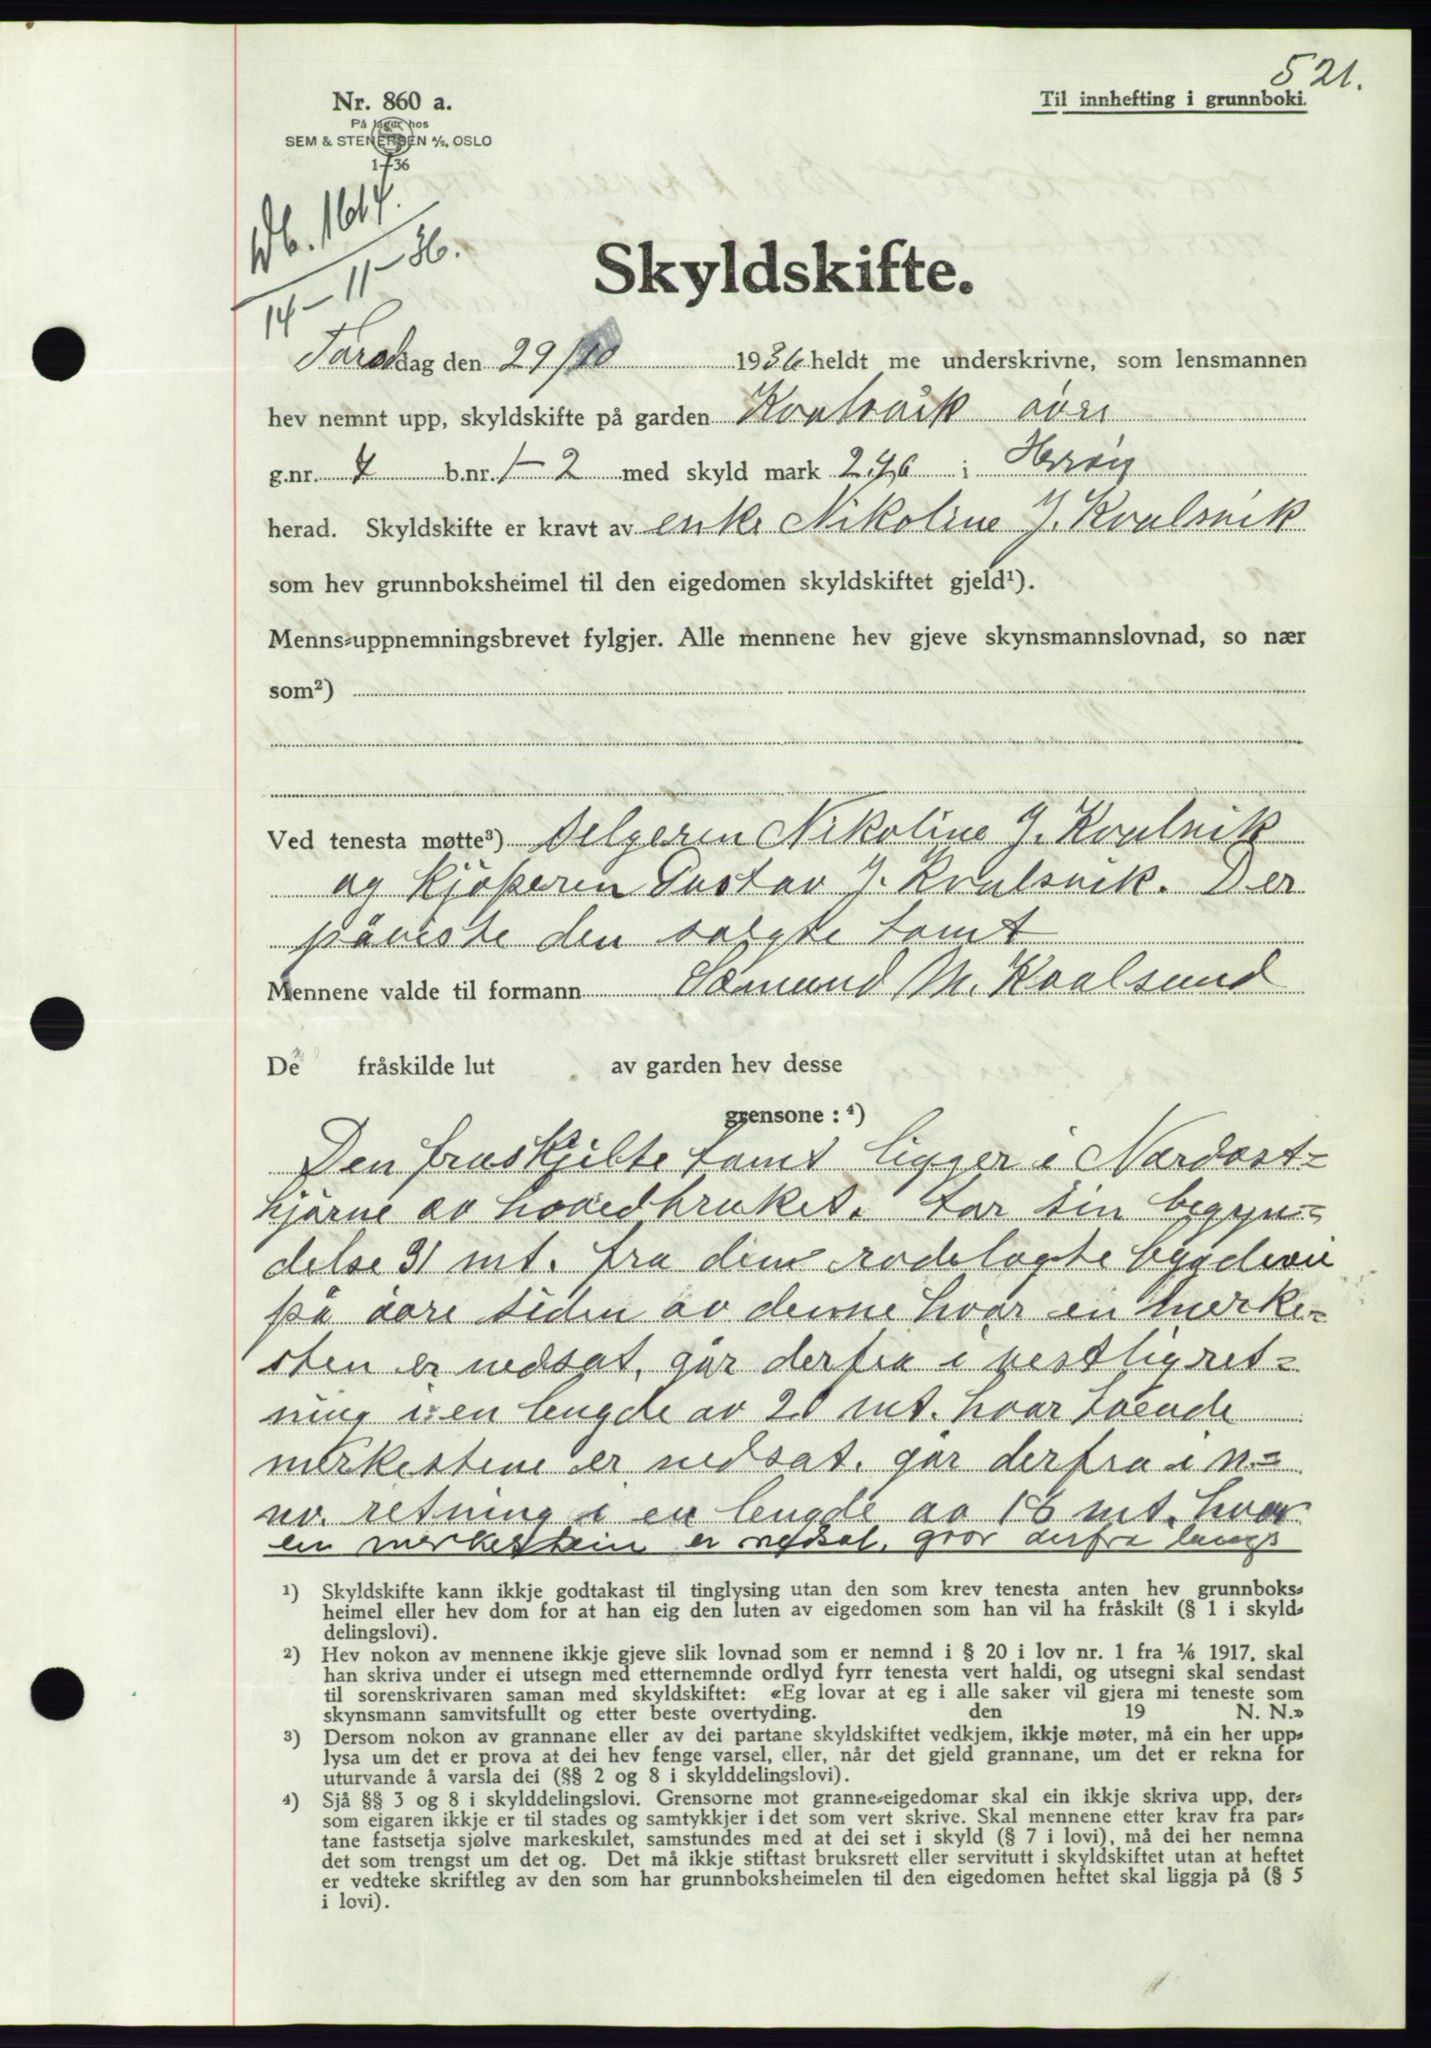 521.
Nr. 860 a.
Til innhefting i grunnboki.
På lager hos
SEM & STENERSEN A/S, OSLO
1-36
Db. 1614.
14-11-36.
Skyldskifte.
Torsdag den 29/10 1936 heldt me underskrivne, som lensmannen
hev nemnt upp, skyldskifte på garden Kvalsvik øvre
g.nr. 4 b.nr. 1-2 med skyld mark 2.46 i Herøy
herad. Skyldskifte er kravt av enke Nikoline J. Kvalsvik
som hev grunnboksheimel til den eigedomen skyldskiftet gjeld¹).
Menns-uppnemningsbrevet fylgjer. Alle mennene hev gjeve skynsmannslovnad, so nær
som²)
Ved tenesta møtte³) Selgeren Nikoline J. Kvalsvik
og kjøperen Gustav J. Kvalsvik. Der
påviste den solgte tomt
Mennene valde til formann Sæmund M. Kvalsund
De fråskilde lut av garden hev desse
grensone : ⁴)
Den fraskjilte tomt ligger i Nordost-
hjørne av hovedbruket. tar sin begyn-
delse 31 mt. fra den rodelagte bygdevei
på øvre siden av denne hvor en merke-
sten er nedsat, går derfra i vestlig ret-
ning i en lengde av 20 mt. hvor tvende
merkestene er nedsat. går derfra i n.-
nv. retning i en lengde av 18 mt. hvor
en merkestein er nedsat. gror derfra langs
¹) Skyldskifte kann ikkje godtakast til tinglysing utan den som krev tenesta anten hev grunnboks-
heimel eller hev dom for at han eig den luten av eigedomen som han vil ha fråskilt (§ 1 i skyld-
delingslovi).
²) Hev nokon av mennene ikkje gjeve slik lovnad som er nemnd i § 20 i lov nr. 1 fra 1/6 1917, skal
han skriva under ei utsegn med etternemnde ordlyd fyrr tenesta vert haldi, og utsegni skal sendast
til sorenskrivaren saman med skyldskiftet: «Eg lovar at eg i alle saker vil gjera mi teneste som
skynsmann samvitsfullt og etter beste overtyding. den 19 N. N.»
³) Dersom nokon av grannane eller av dei partane skyldskiftet vedkjem, ikkje møter, må ein her upp-
lysa um det er prova at dei hev fenge varsel, eller, når det gjeld grannane, um det er rekna for
uturvande å varsla dei (§§ 2 og 8 i skylddelingslovi).
⁴) Sjå §§ 3 og 8 i skylddelingslovi. Grensorne mot granne-eigedomar skal ein ikkje skriva upp, der-
som eigaren ikkje er til stades og samtykkjer i det som vert skrive. Skal mennene etter krav fra par-
tane fastsetja sjølve markeskilet, samstundes med at dei set i skyld (§ 7 i lovi), må dei her nemna
det som trengst um det og. Det må ikkje stiftast bruksrett eller servitutt i skyldskiftet utan at heftet
er vedteke skriftleg av den som har grunnboksheimelen til den eigedomen heftet skal liggja på (§ 5
i lovi).